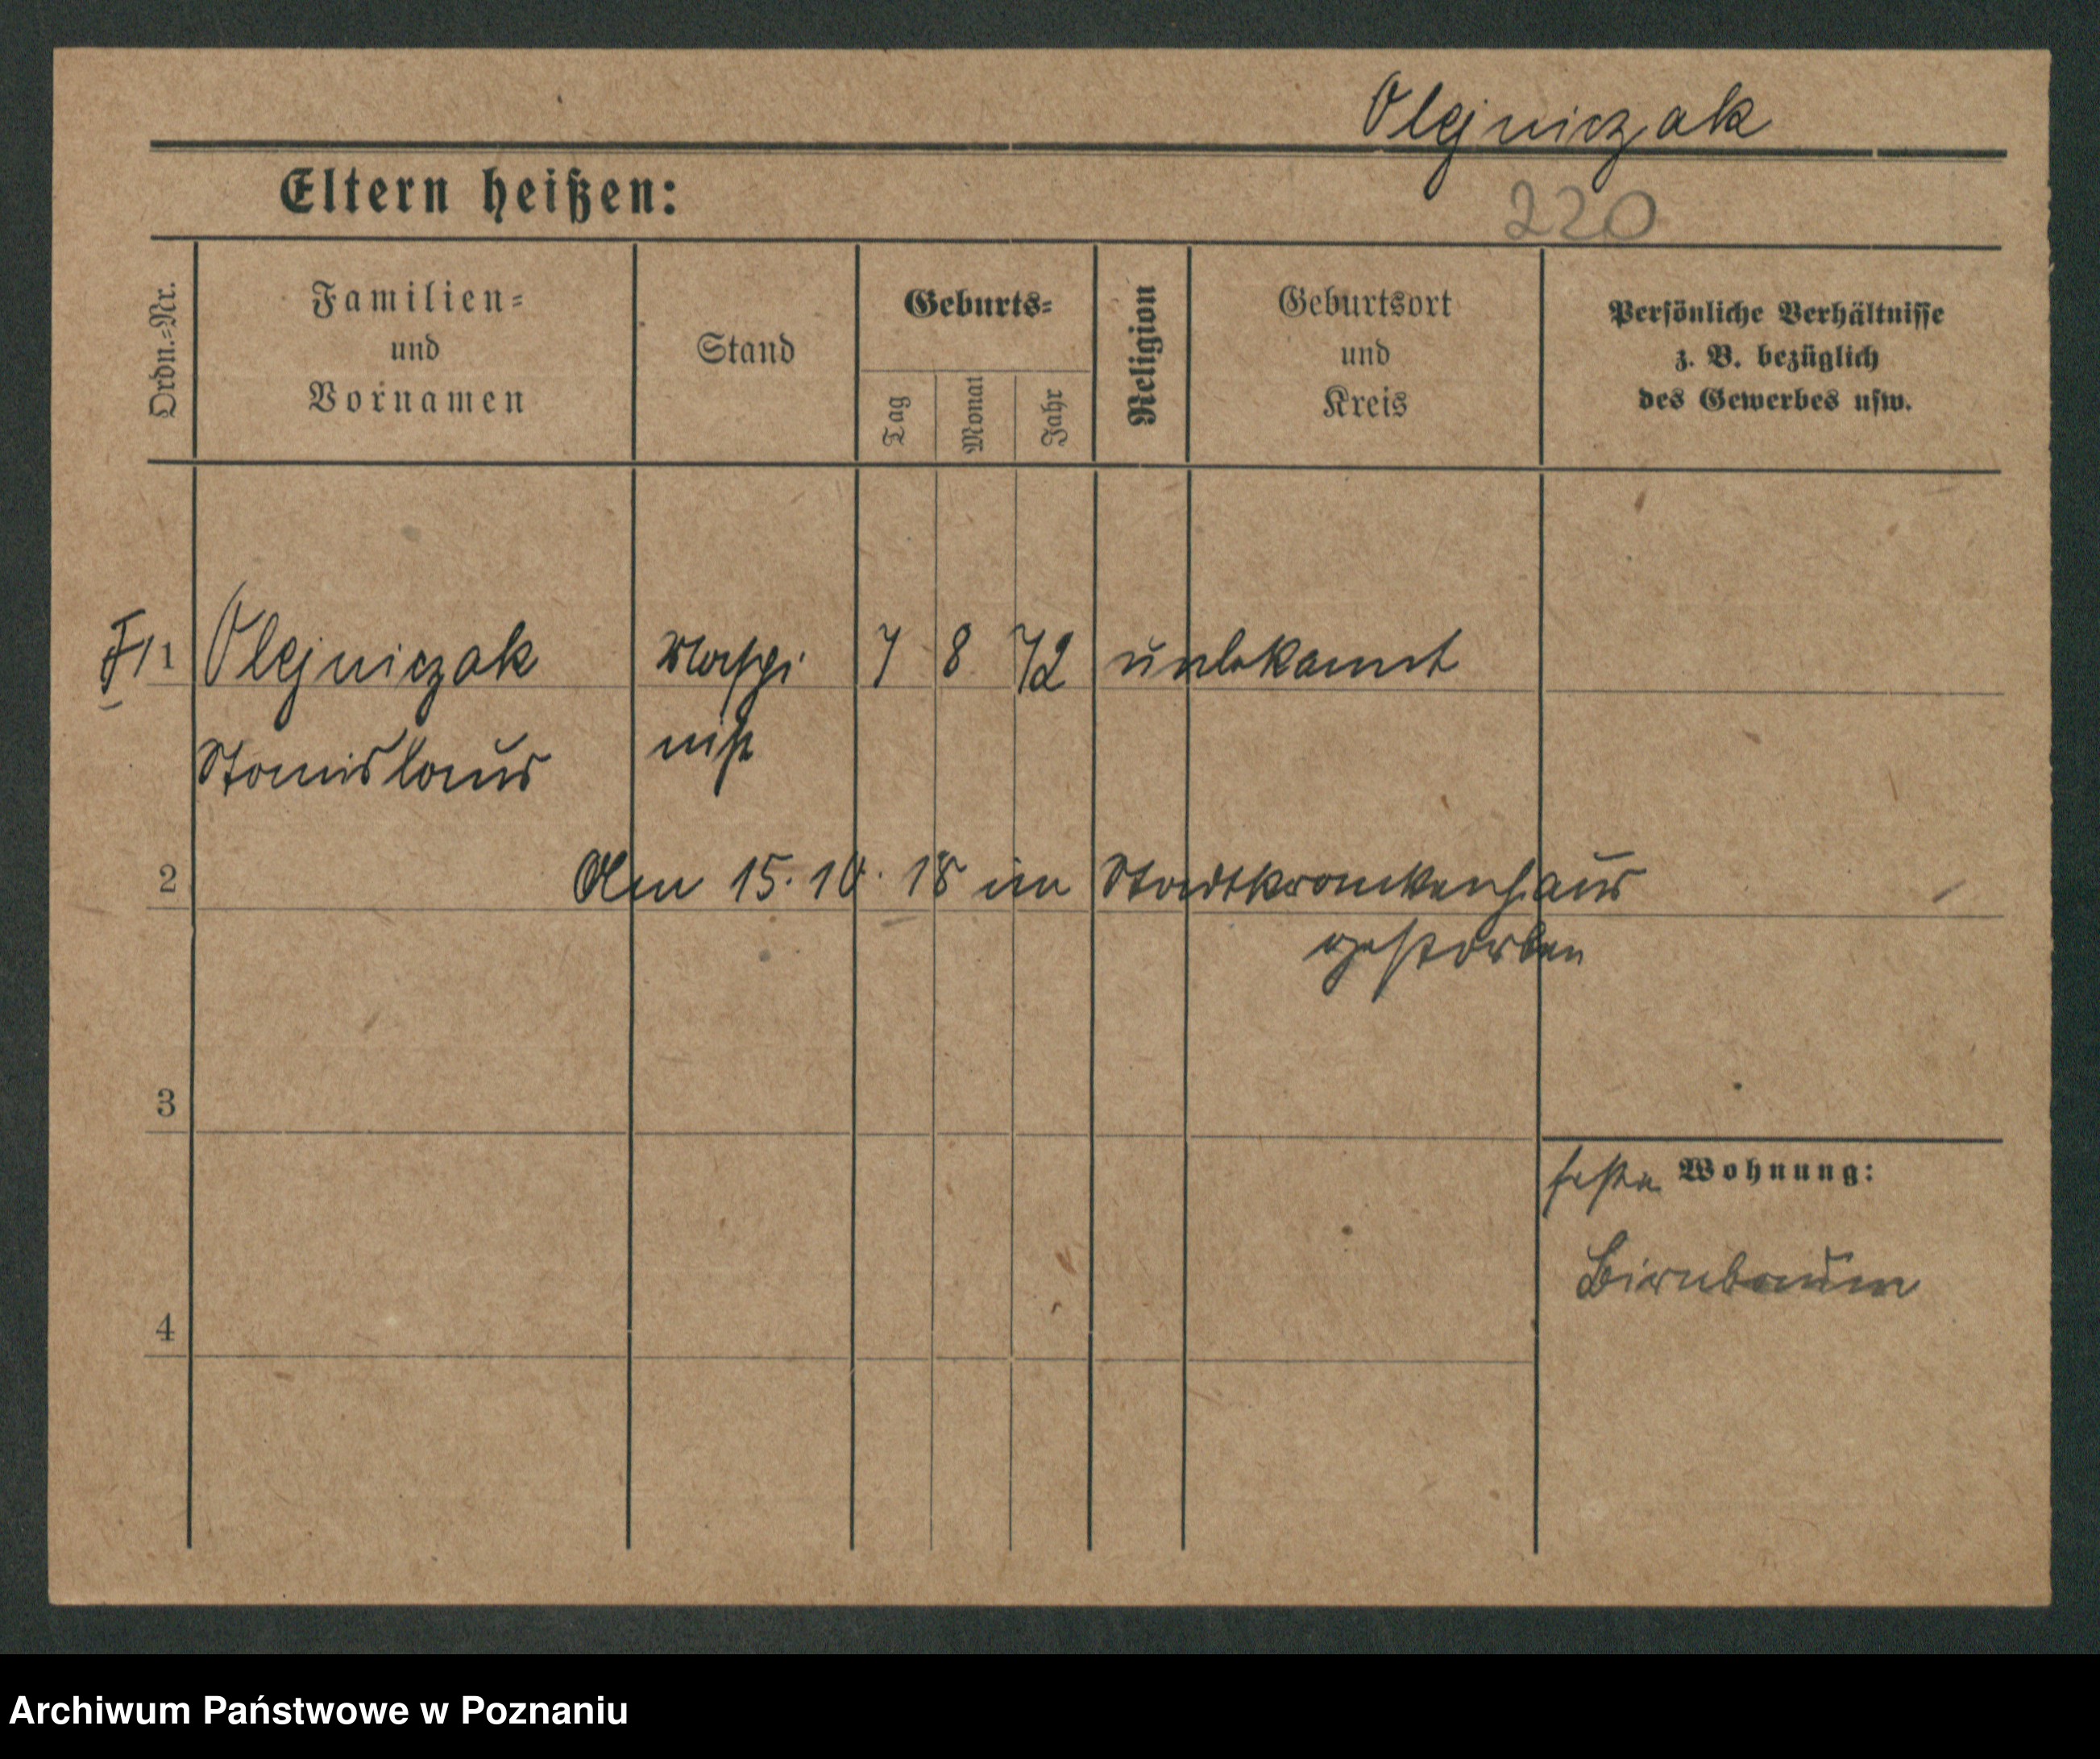 Olejniczak
Eltern heißen:
220
Ordn.-Nr.
Familien-
und
Vornamen
Stand
Geburts-
Tag
Monat
Jahr
Religion
Geburtsort
und
Kreis
Persönliche Verhältnisse
z. B. bezüglich
des Gewerbes usw.
1 Olejniczak Maschi 7 8 72 unbekannt
Stanislaus nist
2 Am 15. 10. 18 im Stadtkrankenhaus
gestorben
3
feste Wohnung:
Birnbaum
4
Archiwum Państwowe w Poznaniu